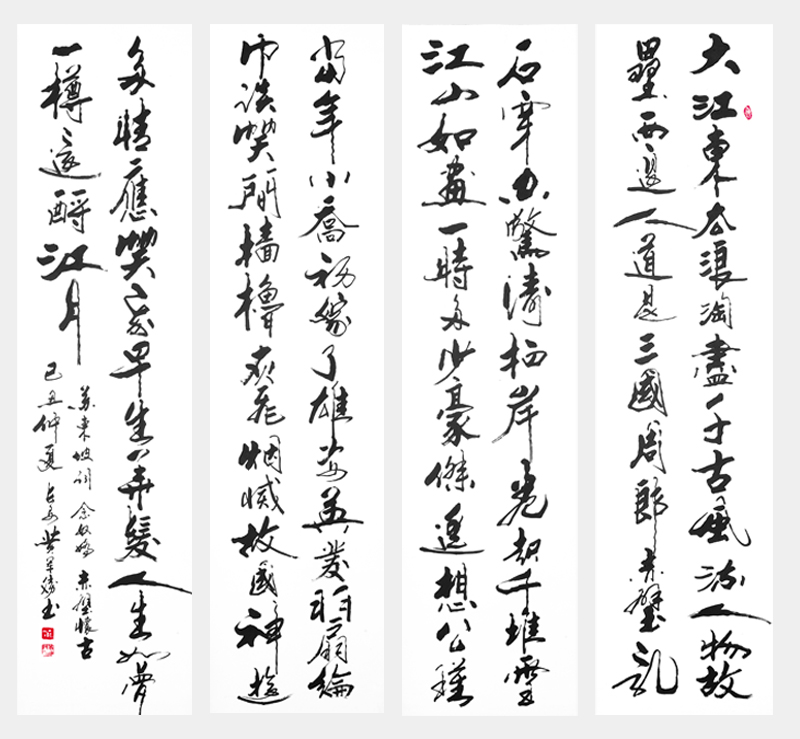 大江東去浪淘盡千古風流人物故
壘西邊人道是三國周郎赤壁亂
石穿空驚濤拍岸卷起千堆雪
江山如畫一時多少豪傑遙想公瑾
當年小喬初嫁了雄姿英發羽扇綸
巾談笑間檣櫓灰飛烟滅故國神遊
多情應笑我早生華髮人生如夢
一樽還酹江月
苏東坡詞念奴嬌赤壁懷古
己丑仲夏